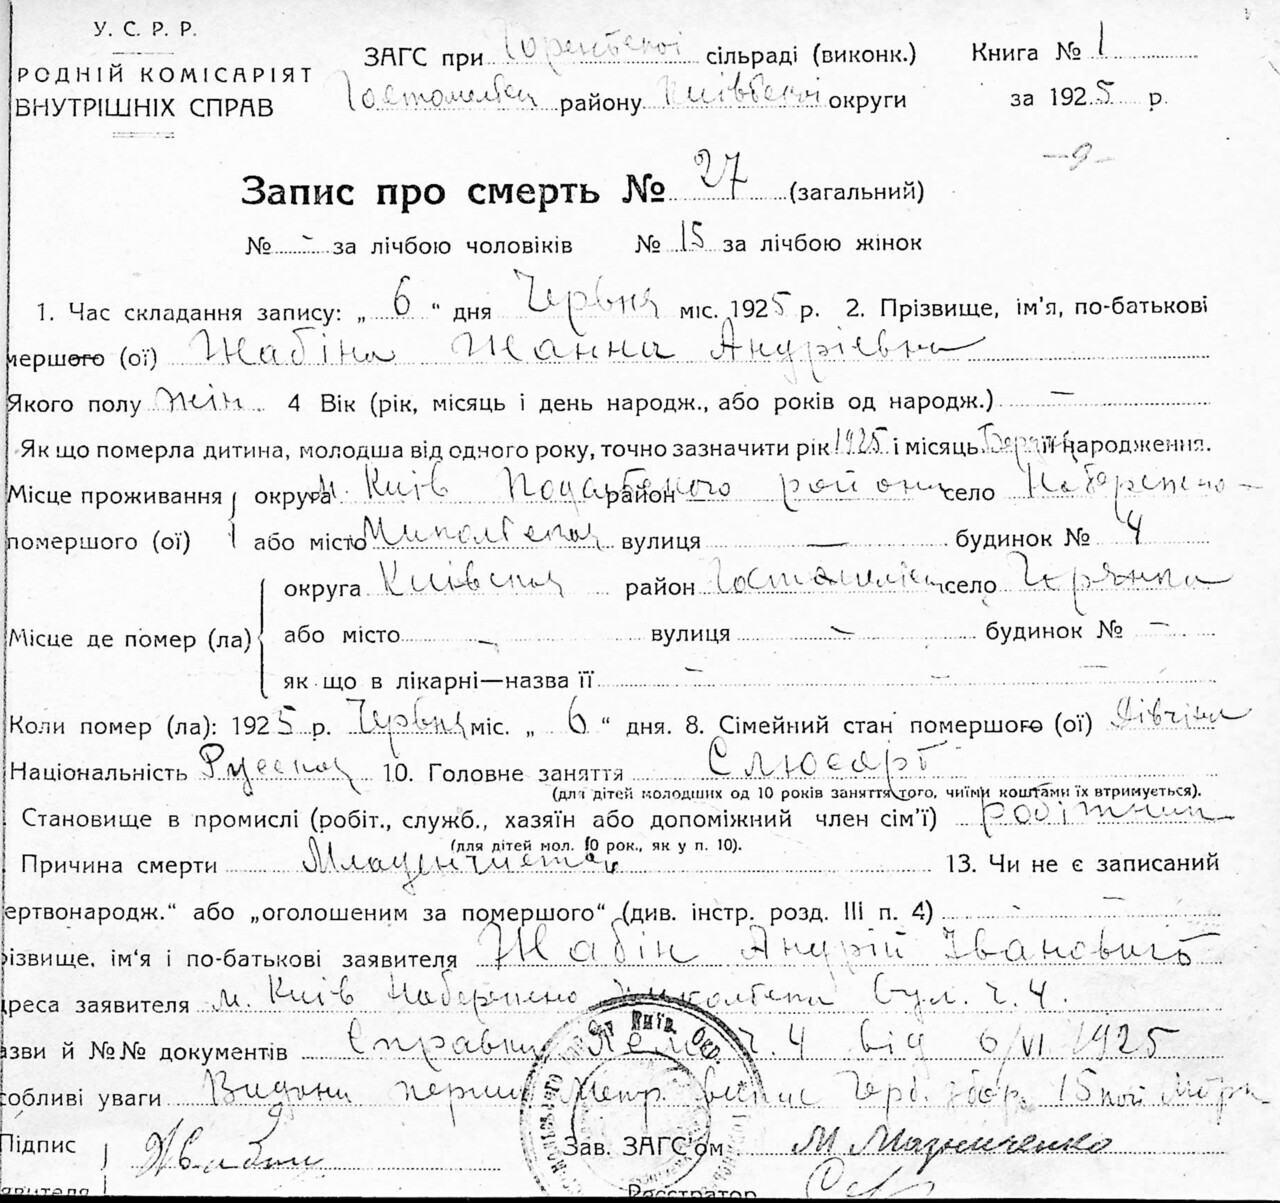 У. С. Р. Р.
РОДНІЙ КОМІСАРІЯТ
ВНУТРІШНІХ СПРАВ
ЗАГС при Горенської сільраді (виконк.)
Гостомельск району Київської округи
Книга № 1
за 1925 р.
-9-
Запис про смерть № 27 (загальний)
№ - за лічбою чоловіків № 15 за лічбою жінок
1. Час складання запису: „ 6 “ дня Червня міс. 1925 р. 2. Прізвище, ім'я, по-батькові
мершого (ої) Жабіна Жанна Андріевна
Якого полу жін. 4 Вік (рік, місяць і день народж., або років од народж.) —
Як що померла дитина, молодша від одного року, точно зазначити рік 1925 і місяць її народження.
Місце проживання округа м. Київ Подольского район району село Набережно-
помершого (ої) або місто Микольская вулиця — будинок № 4
округа Київская район село
Місце де помер (ла) або місто - вулиця - будинок № -
як що в лікарні—назва її - -
Коли помер (ла): 1925 р. Червня міс. „ 6 “ дня. 8. Сімейний стан помершого (ої) Дівчіна
Національність Русская 10. Головне заняття Слюсарь
(для дітей молодших од 10 років заняття того, чиїми коштами їх втримується).
Становище в промислі (робіт., служб., хазяїн або допоміжний член сім'ї) робітник
(для дітей мол. 10 рок., як у п. 10).
Причина смерти 13. Чи не є записаний
ертвонародж.“ або „оголошеним за помершого“ (див. інстр. розд. III п. 4) - -
різвище, ім'я і по-батькові заявителя Жабін Андрій Івановичь
дреса заявителя м. Київ Набережно Микольска вул. ч. 4.
азви й №№ документів Справка ч. 4 від 6/VI 1925
собливі уваги Видани Черв. збор. 15 коп
Підпис
явителя
Зав. ЗАГС'ом М Мазниченко
Реєстратор